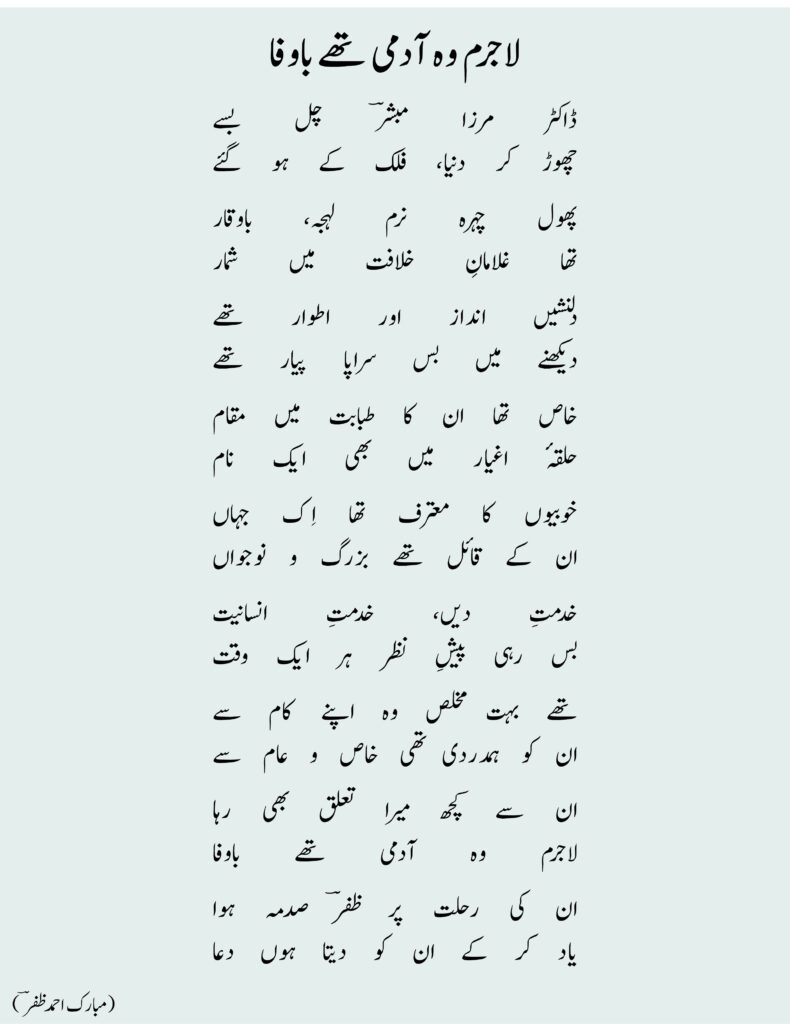 لاجرم وہ آدمی تھے باوفا
ڈاکٹر مرزا مبشرؔ چل بسے
چھوڑ کر دنیا، فلک کے ہو گئے
پھول چہرہ نرم لہجہ، باوقار
تھا غلامانِ خلافت میں شمار
دلنشیں انداز اور اطوار تھے
دیکھنے میں بس سراپا پیار تھے
خاص تھا ان کا طبابت میں مقام
حلقۂ اغیار میں بھی ایک نام
خوبیوں کا معترف تھا اِک جہاں
ان کے قائل تھے بزرگ و نوجواں
خدمتِ دیں، خدمتِ انسانیت
بس رہی پیشِ نظر ہر ایک وقت
تھے بہت مخلص وہ اپنے کام سے
ان کو ہمدردی تھی خاص و عام سے
ان سے کچھ میرا تعلق بھی رہا
لاجرم وہ آدمی تھے باوفا
ان کی رحلت پر ظفرؔ صدمہ ہوا
یاد کر کے ان کو دیتا ہوں دعا
(مبارک احمد ظفرؔ)